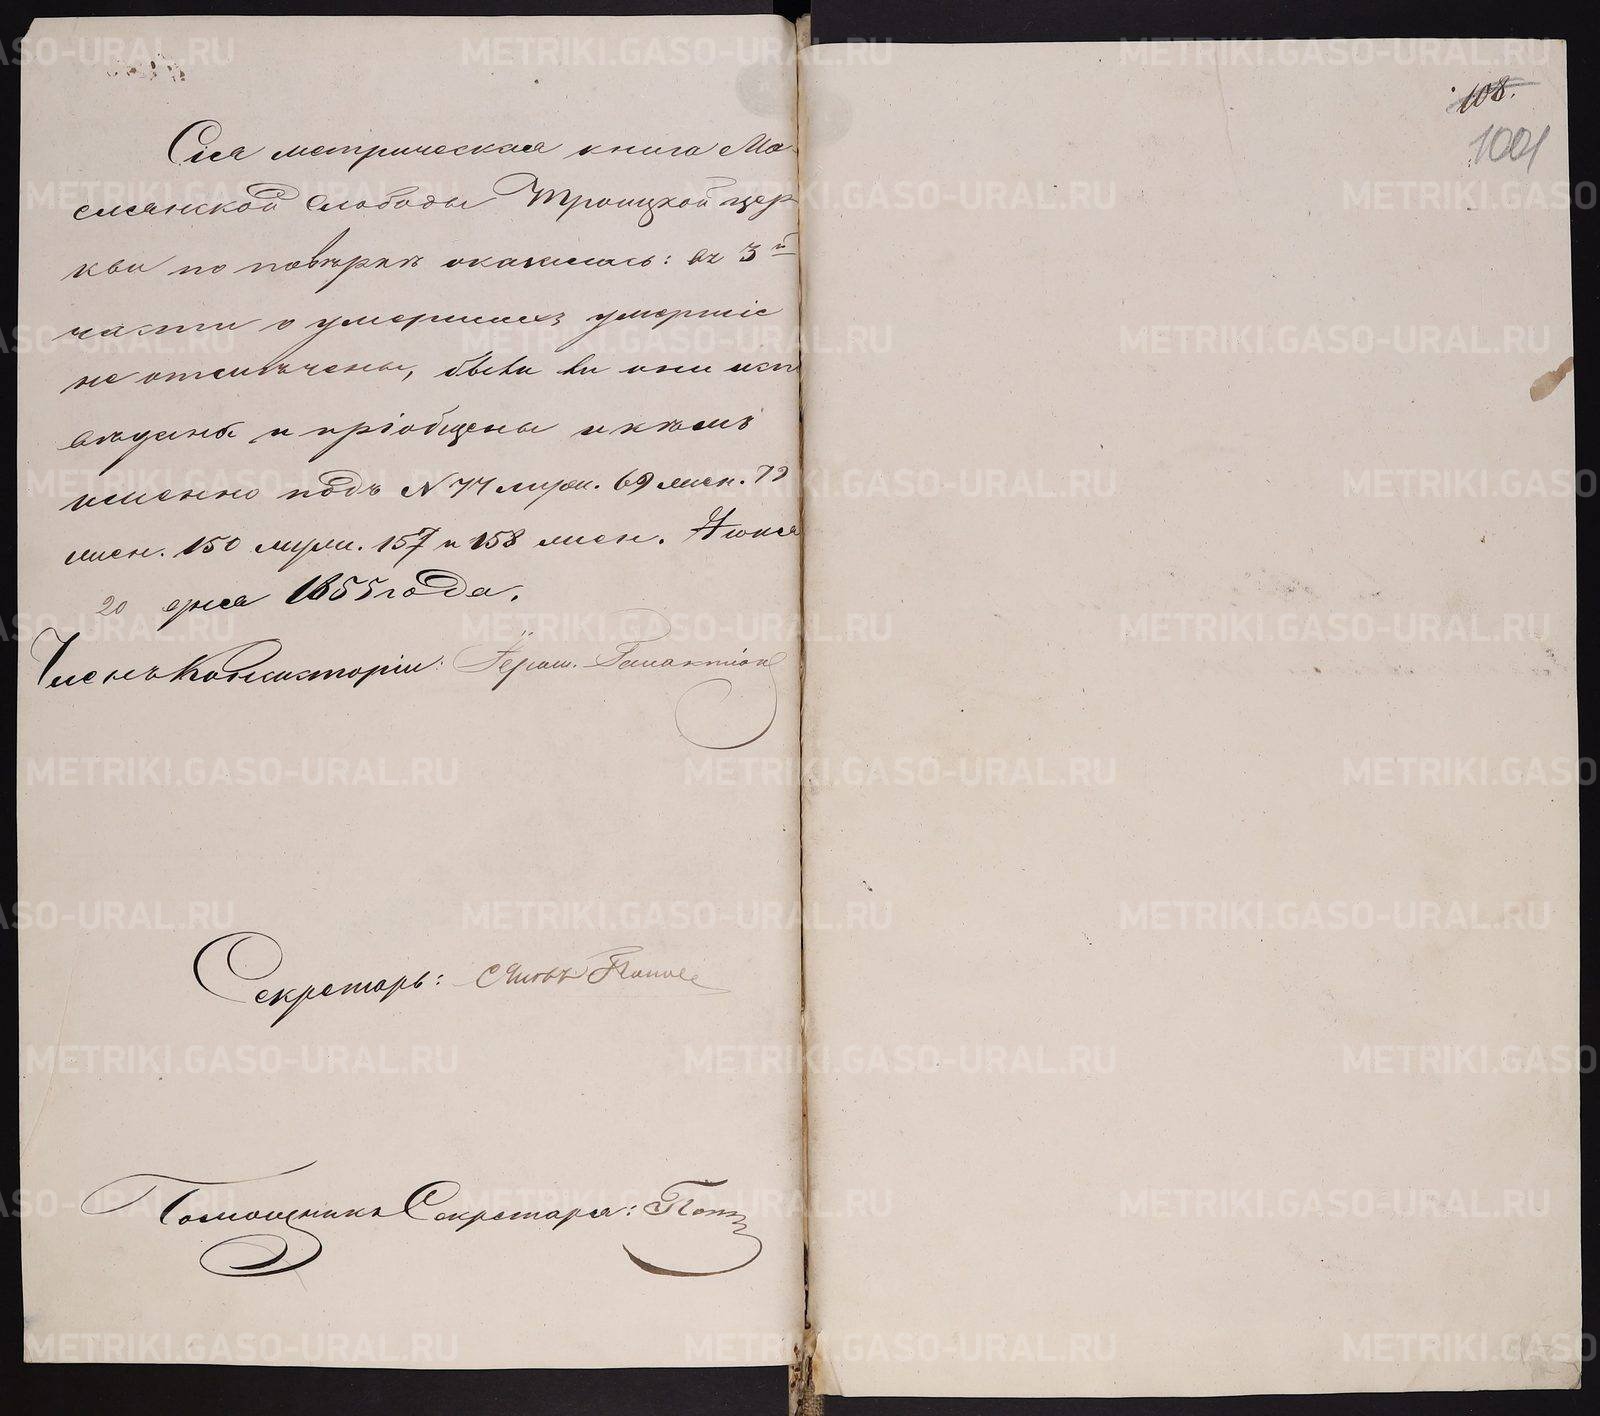 Сія метрическая книга Ма-
слянской слободы Троицкой цер
кви по повѣркѣ оказалась: въ 3й
части о умершихъ умершіе
не отмѣчены, были ли они испо
вѣданы и пріобщены и кѣмъ
именно подъ N 77 муж. 69 жен. 79
жен. 150 муж. 157 и 158 жен. Іюня
20 дня 1855 года.
Членъ Консисторіи: Іером. Галактіон
Секретарь: Яковъ Попов
Помощникъ Секретаря: Поп
108.
1001
METRIKI.GASO-URAL.RU